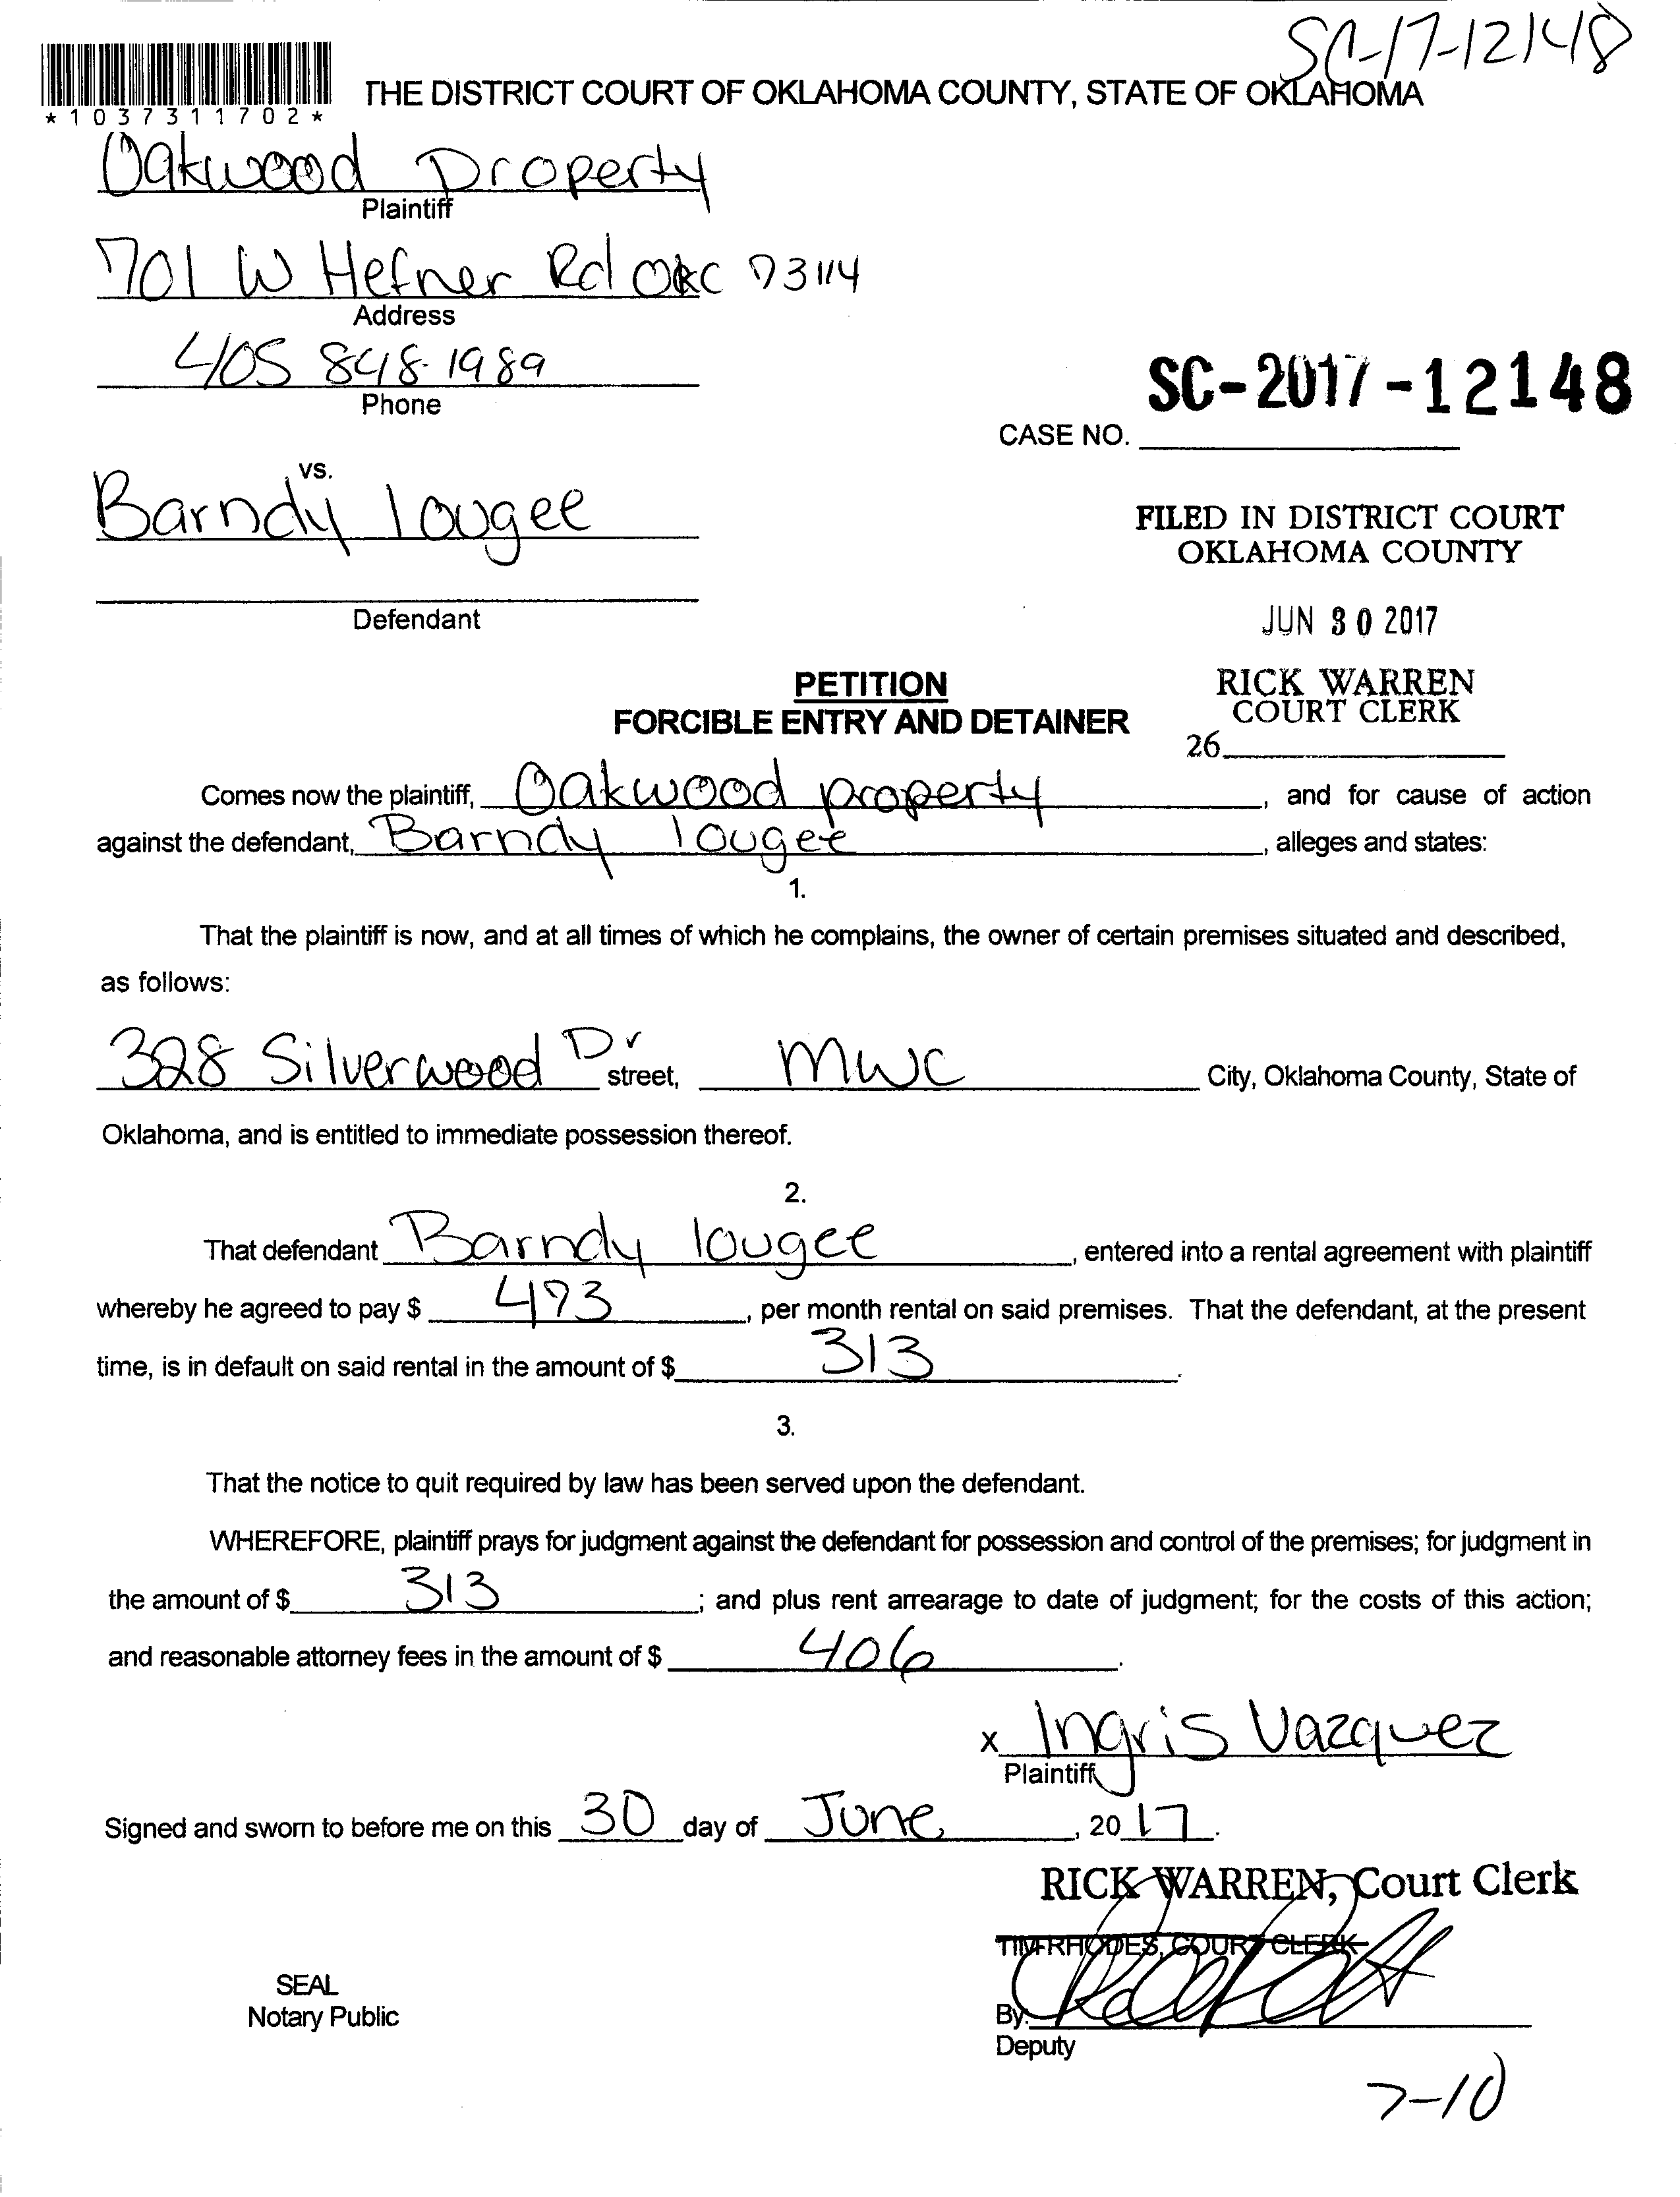 SC-17-12148
*1037311702*
THE DISTRICT COURT OF OKLAHOMA COUNTY, STATE OF OKLAHOMA
Oakwood Property
Plaintiff
701 W Hefner Rd OKC 73114
Address
405 848-1989
Phone
SC-2017-12148
CASE NO.
vs.
Barndy lougee
FILED IN DISTRICT COURT
OKLAHOMA COUNTY
Defendant
JUN 30 2017
PETITION
FORCIBLE ENTRY AND DETAINER
RICK WARREN
COURT CLERK
26
Comes now the plaintiff, Oakwood property, and for cause of action
against the defendant, Barndy lougee, alleges and states:
1.
That the plaintiff is now, and at all times of which he complains, the owner of certain premises situated and described,
as follows:
328 Silverwood Dr street, MWC City, Oklahoma County, State of
Oklahoma, and is entitled to immediate possession thereof.
2.
That defendant Barndy lougee, entered into a rental agreement with plaintiff
whereby he agreed to pay $ 473, per month rental on said premises. That the defendant, at the present
time, is in default on said rental in the amount of $ 313.
3.
That the notice to quit required by law has been served upon the defendant.
WHEREFORE, plaintiff prays for judgment against the defendant for possession and control of the premises; for judgment in
the amount of $ 313; and plus rent arrearage to date of judgment; for the costs of this action;
and reasonable attorney fees in the amount of $ 406.
x Ingris Vazquez
Plaintiff
Signed and sworn to before me on this 30 day of June, 2017.
RICK WARREN, Court Clerk
TIM RHODES, COURT CLERK
SEAL
Notary Public
By:
Deputy
7-10